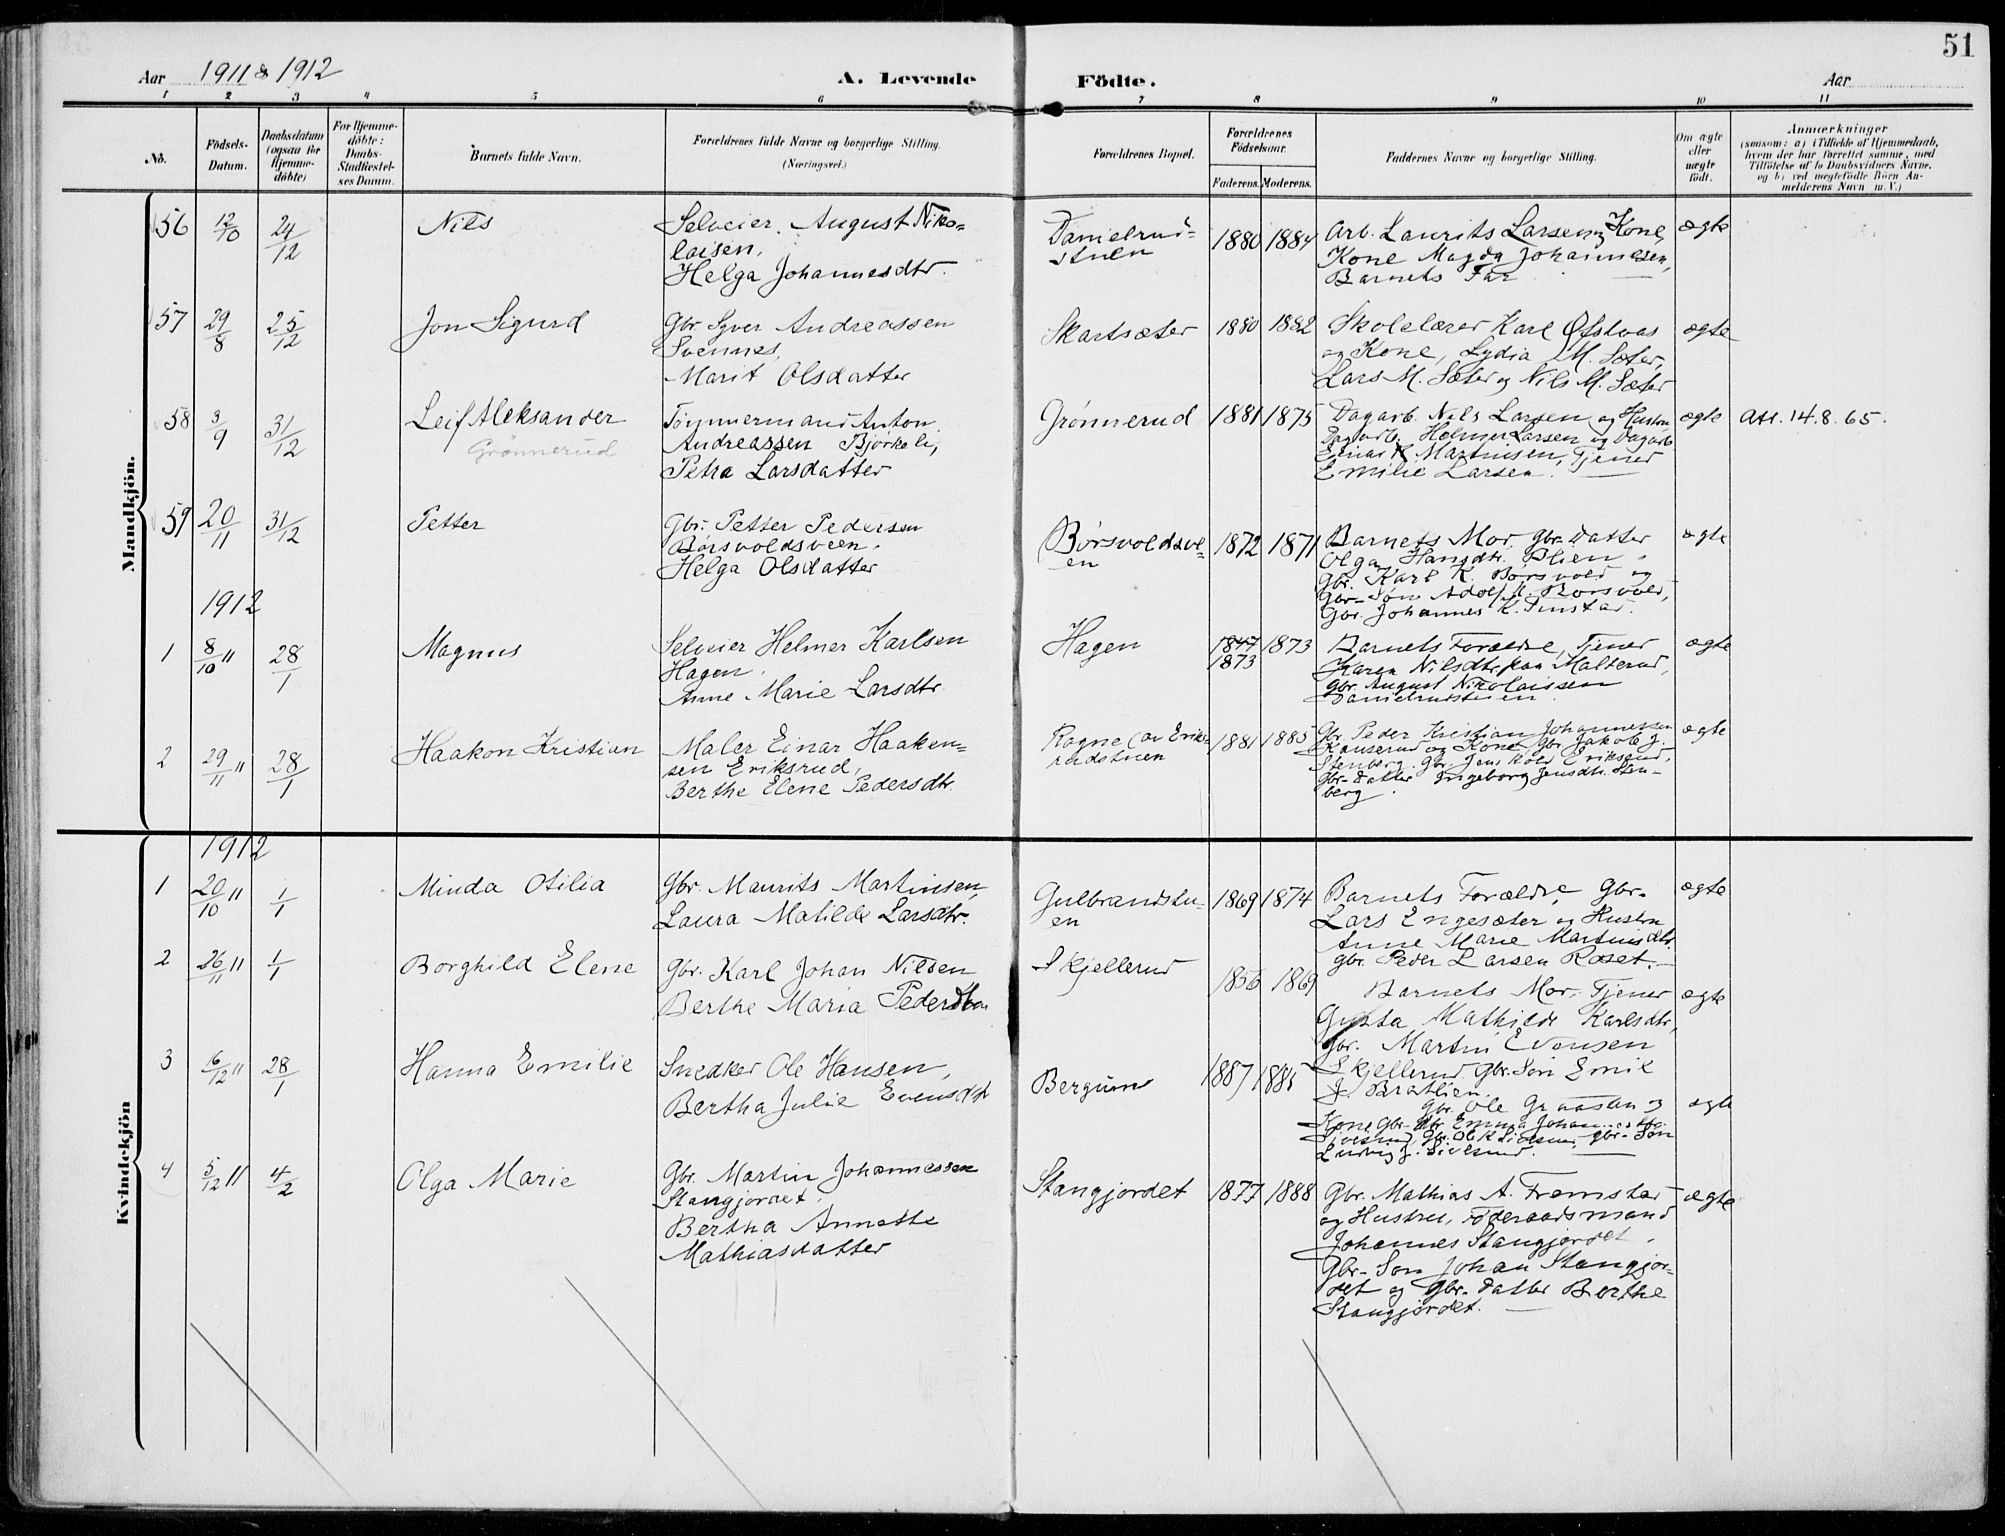 51
Aar 1911 & 1912
A. Levende Födte.
Aar
1 2 3 4 5 6 7 8 9 10 11
No.
Födsels-
Datum.
Daabsdatum
(ogsaa for
Hjemme-
döbte)
For Hjemme-
döbte:
Daabs-
Stadfæstel-
ses Datum.
Barnets fulde Navn.
Forældrenes fulde Navne og borgerlige Stilling.
(Næringsvei.)
Forældrenes Bopæl.
Forældrenes
Födselsaar.
Faderens. Moderens.
Faddernes Navne og borgerlige Stilling.
Om ægte
eller
uægte
födt.
Anmærkninger
(saasom: a) i Tilfælde af Hjemmedaab,
hvem der har forrettet samme, med
Tilföielse af to Daabsvidners Navne.
og b) ved uægtefödte Börn An-
melderens Navn m. V.)
Mandkjön.
56 12/10 24/12 Nils
Selveier August Niko-
laisen,
Helga Johannesdtr.
Danielrud-
stuen
1880 1884
Arb. Laurits Larsen og Kone,
Kone Magda Johannesen,
Barnets Far
ægte
57 29/8 25/12 Jon Sigurd
Gbr. Syver Andreassen
Svennes,
Marit Olsdatter
Skartsæter
1880 1882
Skolelærer Karl Ofstvas
og Kone, Lydia M. Sæter,
Lars M. Sæter og Nils M. Sæter
ægte
58 3/9 31/12 Leif Aleksander
Grønnerud
Tømmermand Anton
Andreassen Bjørkeli,
Petra Larsdatter
Grønnerud
1881 1875
Dagarb. Nils Larsen og Hustru
Dagarb. Helmer Larsen og Dagarb
Einar K. Martinsen, Tjener
Emilie Larsen.
ægte
Att. 14.8.65.
59 20/11 31/12 Petter
Gbr. Petter Pedersen
Børsvoldsveen,
Helga Olsdatter
Børsvoldsve-
en
1872 1871
Barnets Mor, Gbr. Datter
Olga Hansdtr. Blien,
Gbr. Karl K. Børsvold og
Gbr-Søn Adolf K. Børsvold,
Gbr. Johannes K. Finstad.
ægte
1912
1 8/10 11 28/1 Magnus
Selveier Helmer Karlsen
Hagen,
Anne Marie Larsdtr.
Hagen
1847 1873
1873
Barnets Forældre, Tjener
Karen Nilsdtr. paa Malterud,
Gbr. August Nikolaissen
Danielrudstuen.
ægte
2 29/11 11 28/1 Haakon Kristian
Maler Einar Haaken-
sen Eriksrud,
Berthe Elene Pedersdtr.
Rogne (av Eriks
rudstuen
1881 1885
Gbr. Peder Kristian Johannessen
Kanserud og Kone, Gbr. Jakob J.
Stenberg, Gbr. Jens Eriksrud,
Gbr-Datter Ingeborg Jensdtr. Sten-
berg.
ægte
Kvindekjön
1912
1 20/10 11 1/1 Minda Otilia
Gbr. Maurits Martinsen,
Laura Matilde Larsdtr.
Gulbrandstu-
en
1869 1874
Barnets Forældre, Gbr.
Lars Engesæter og Hustru
Anne Marie Martinsdtr.
Gbr. Peder Larsen Roset.
ægte
2 26/11 11 1/1 Borghild Elene
Gbr. Karl Johan Nilsen
Berthe Maria Pedersdtr.
Skjellerud
1856 1869
Barnets Mor, Tjener
Gusta Mathilde Karlsdtr,
Gbr. Martin Evensen
Skjellerud, Gbr. Søn Emil
J. Bratlien.
ægte
3 16/12 11 28/1 Hanna Emilie
Snedker Ole Hansen,
Bertha Julie Evensdtr
Bergum
1887
Gbr. Ole Graastan og
Kone, Gbr-Dtr. Emma
Gbr. Søn
Ludvig J.
ægte
4 5/12 11 4/2 Olga Marie
Gbr. Martin Johannessen
Stangjordet,
Bertha Annette
Mathiasdatter
Stangjordet
1877 1888
Gbr. Mathias A. Fremstad
og Hustru, Føderaadsmand
Johannes Stangjordet,
Gbr-Søn Johan Stangjor-
det og Gbr-Datter Berthe
Stangjordet.
ægte